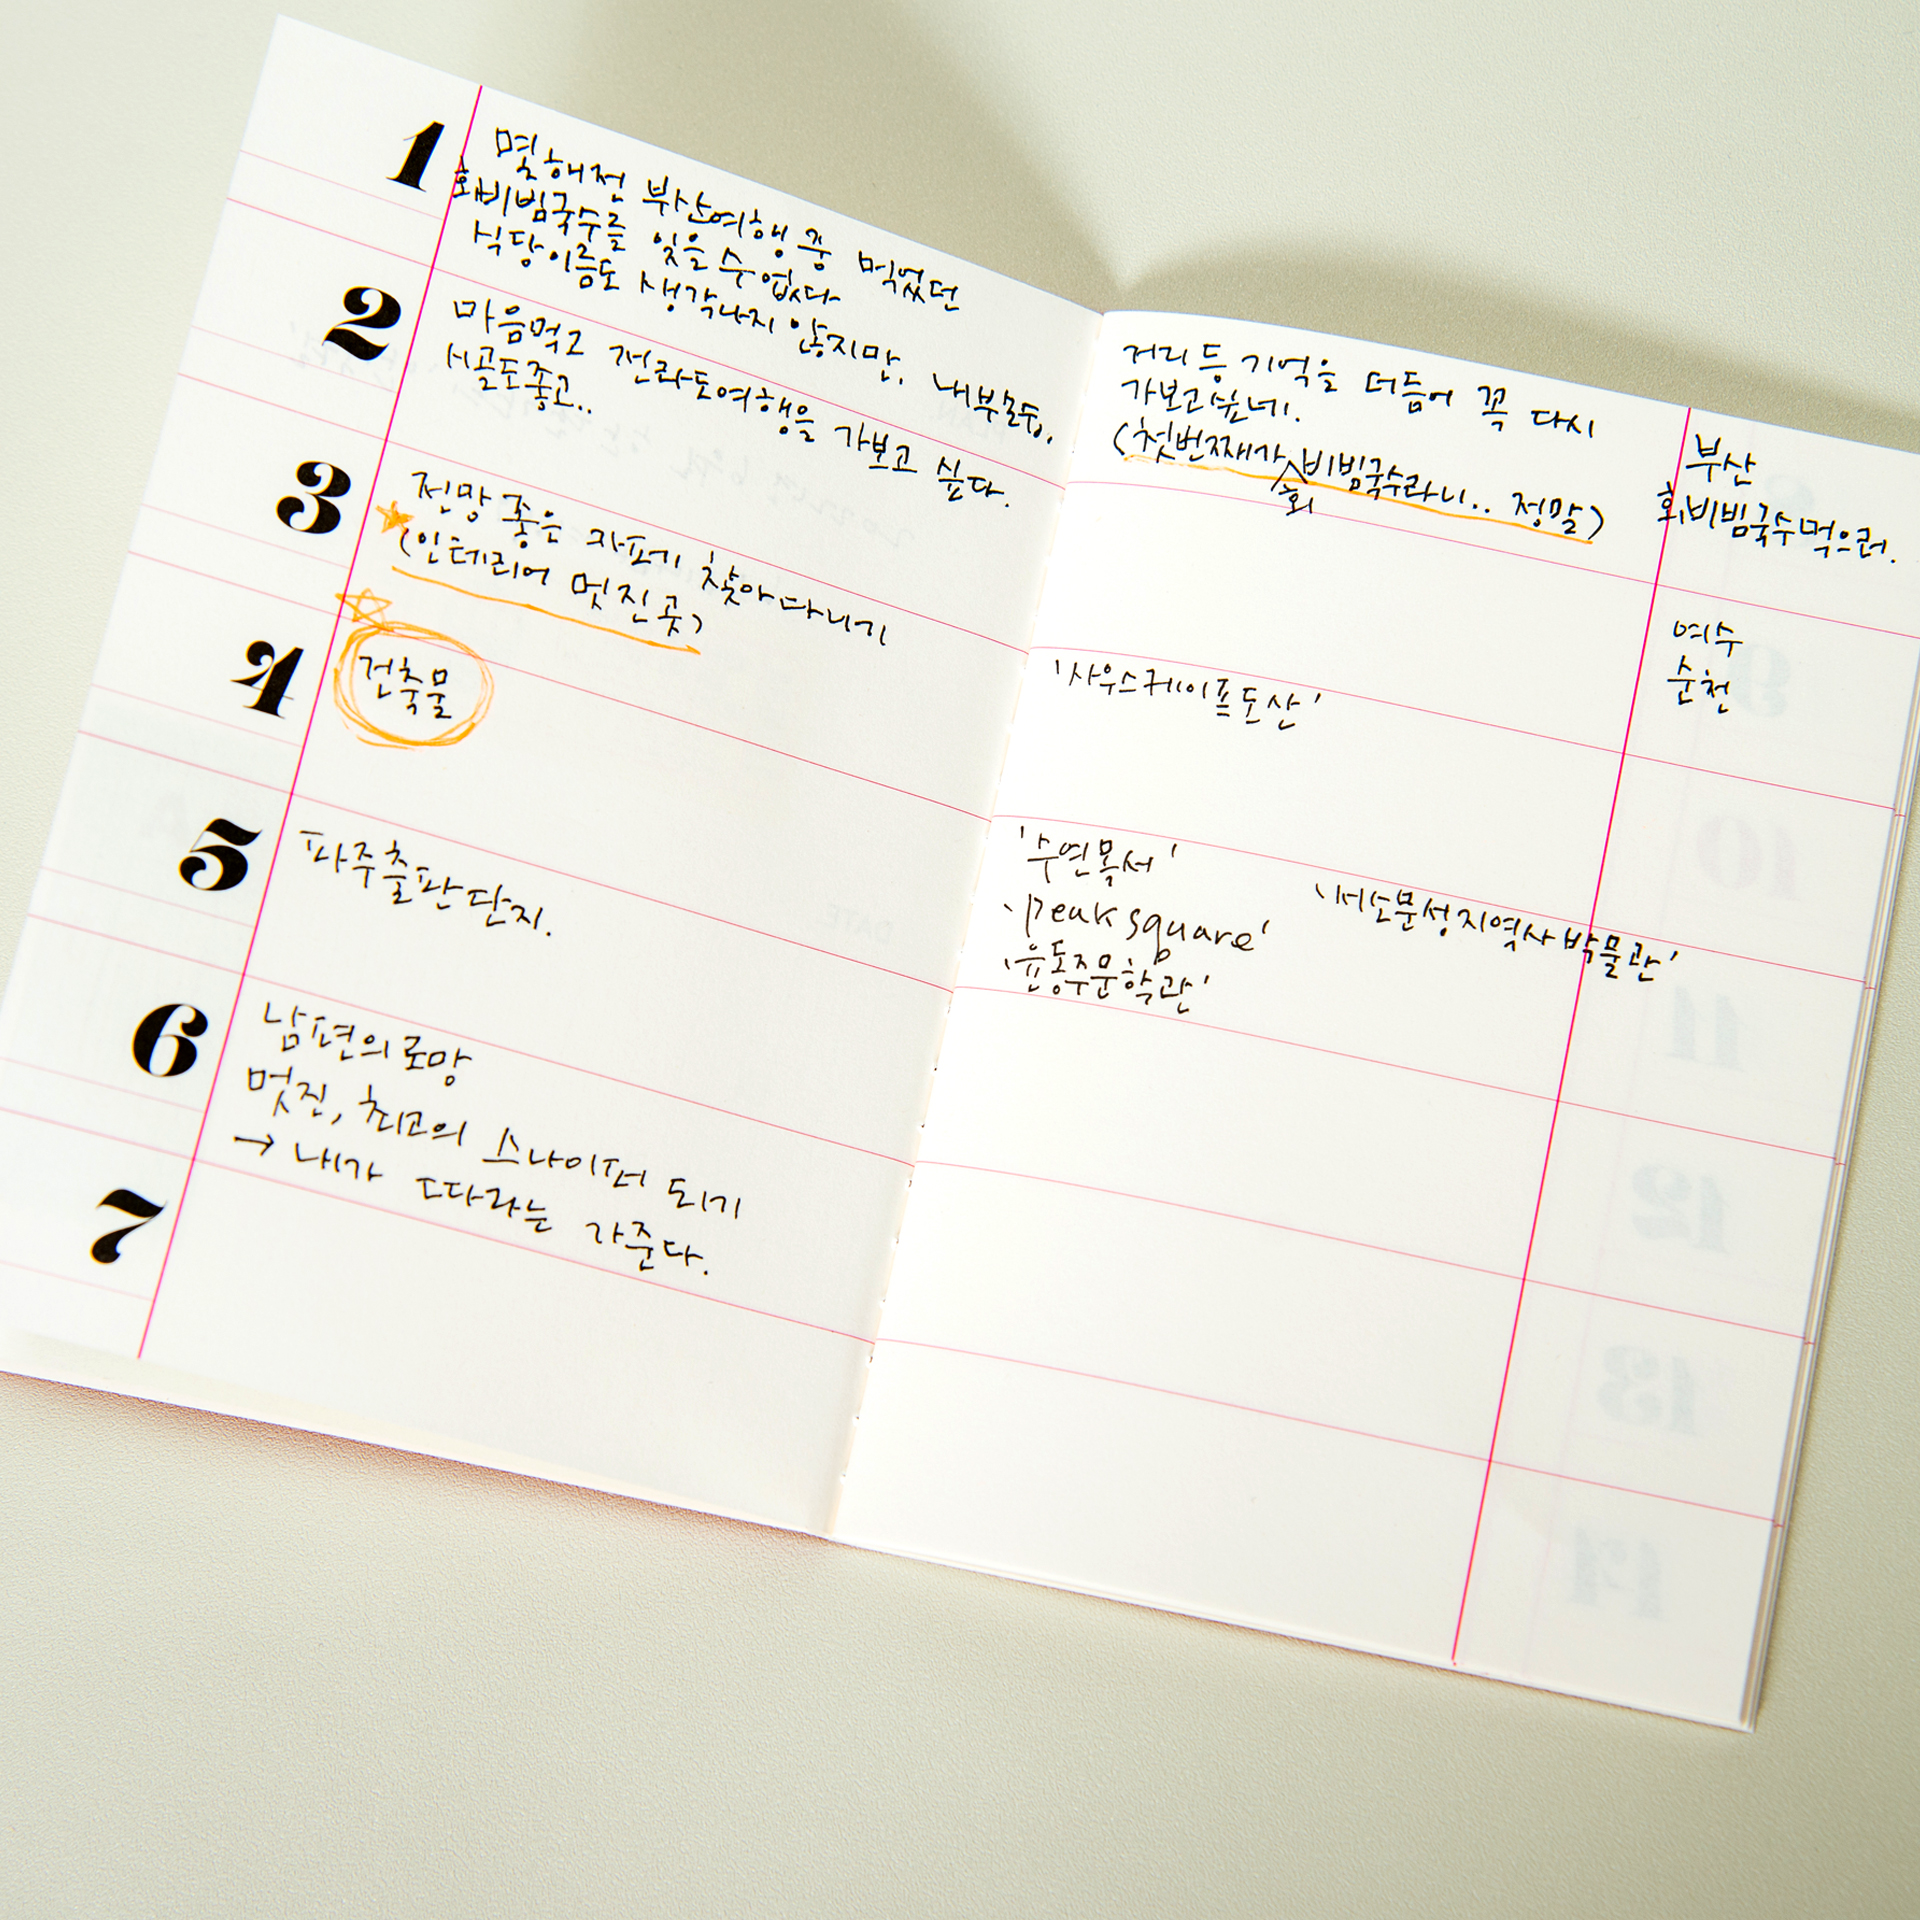 1
몇해전 부산여행 중 먹었던
회비빔국수를 잊을 수 없다
식당이름도 생각나지 않지만. 내부모습,
2
마음먹고 전라도여행을 가보고 싶다.
시골도좋고..
3
전망 좋은 까페기 찾아다니기
(인테리어 멋진곳)
4
건축물
5
파주출판단지.
6
남편의 로망
멋진, 최고의 스나이퍼 되기
→ 내가 따라는 가준다.
7
거리 등 기억을 더듬어 꼭 다시
가보고싶네.
(첫번째가 회 비빔국수라니.. 정말)
부산
회비빔국수먹으러.
여수
순천
'사우스케이프도산'
'수연목서'
'서소문성지역사박물관'
'Peak square'
'윤동주문학관'